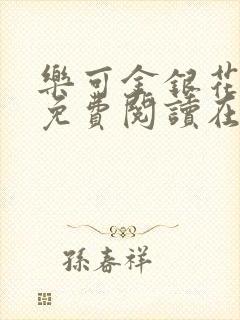 樂可金銀花
免費閱讀在
孫春祥